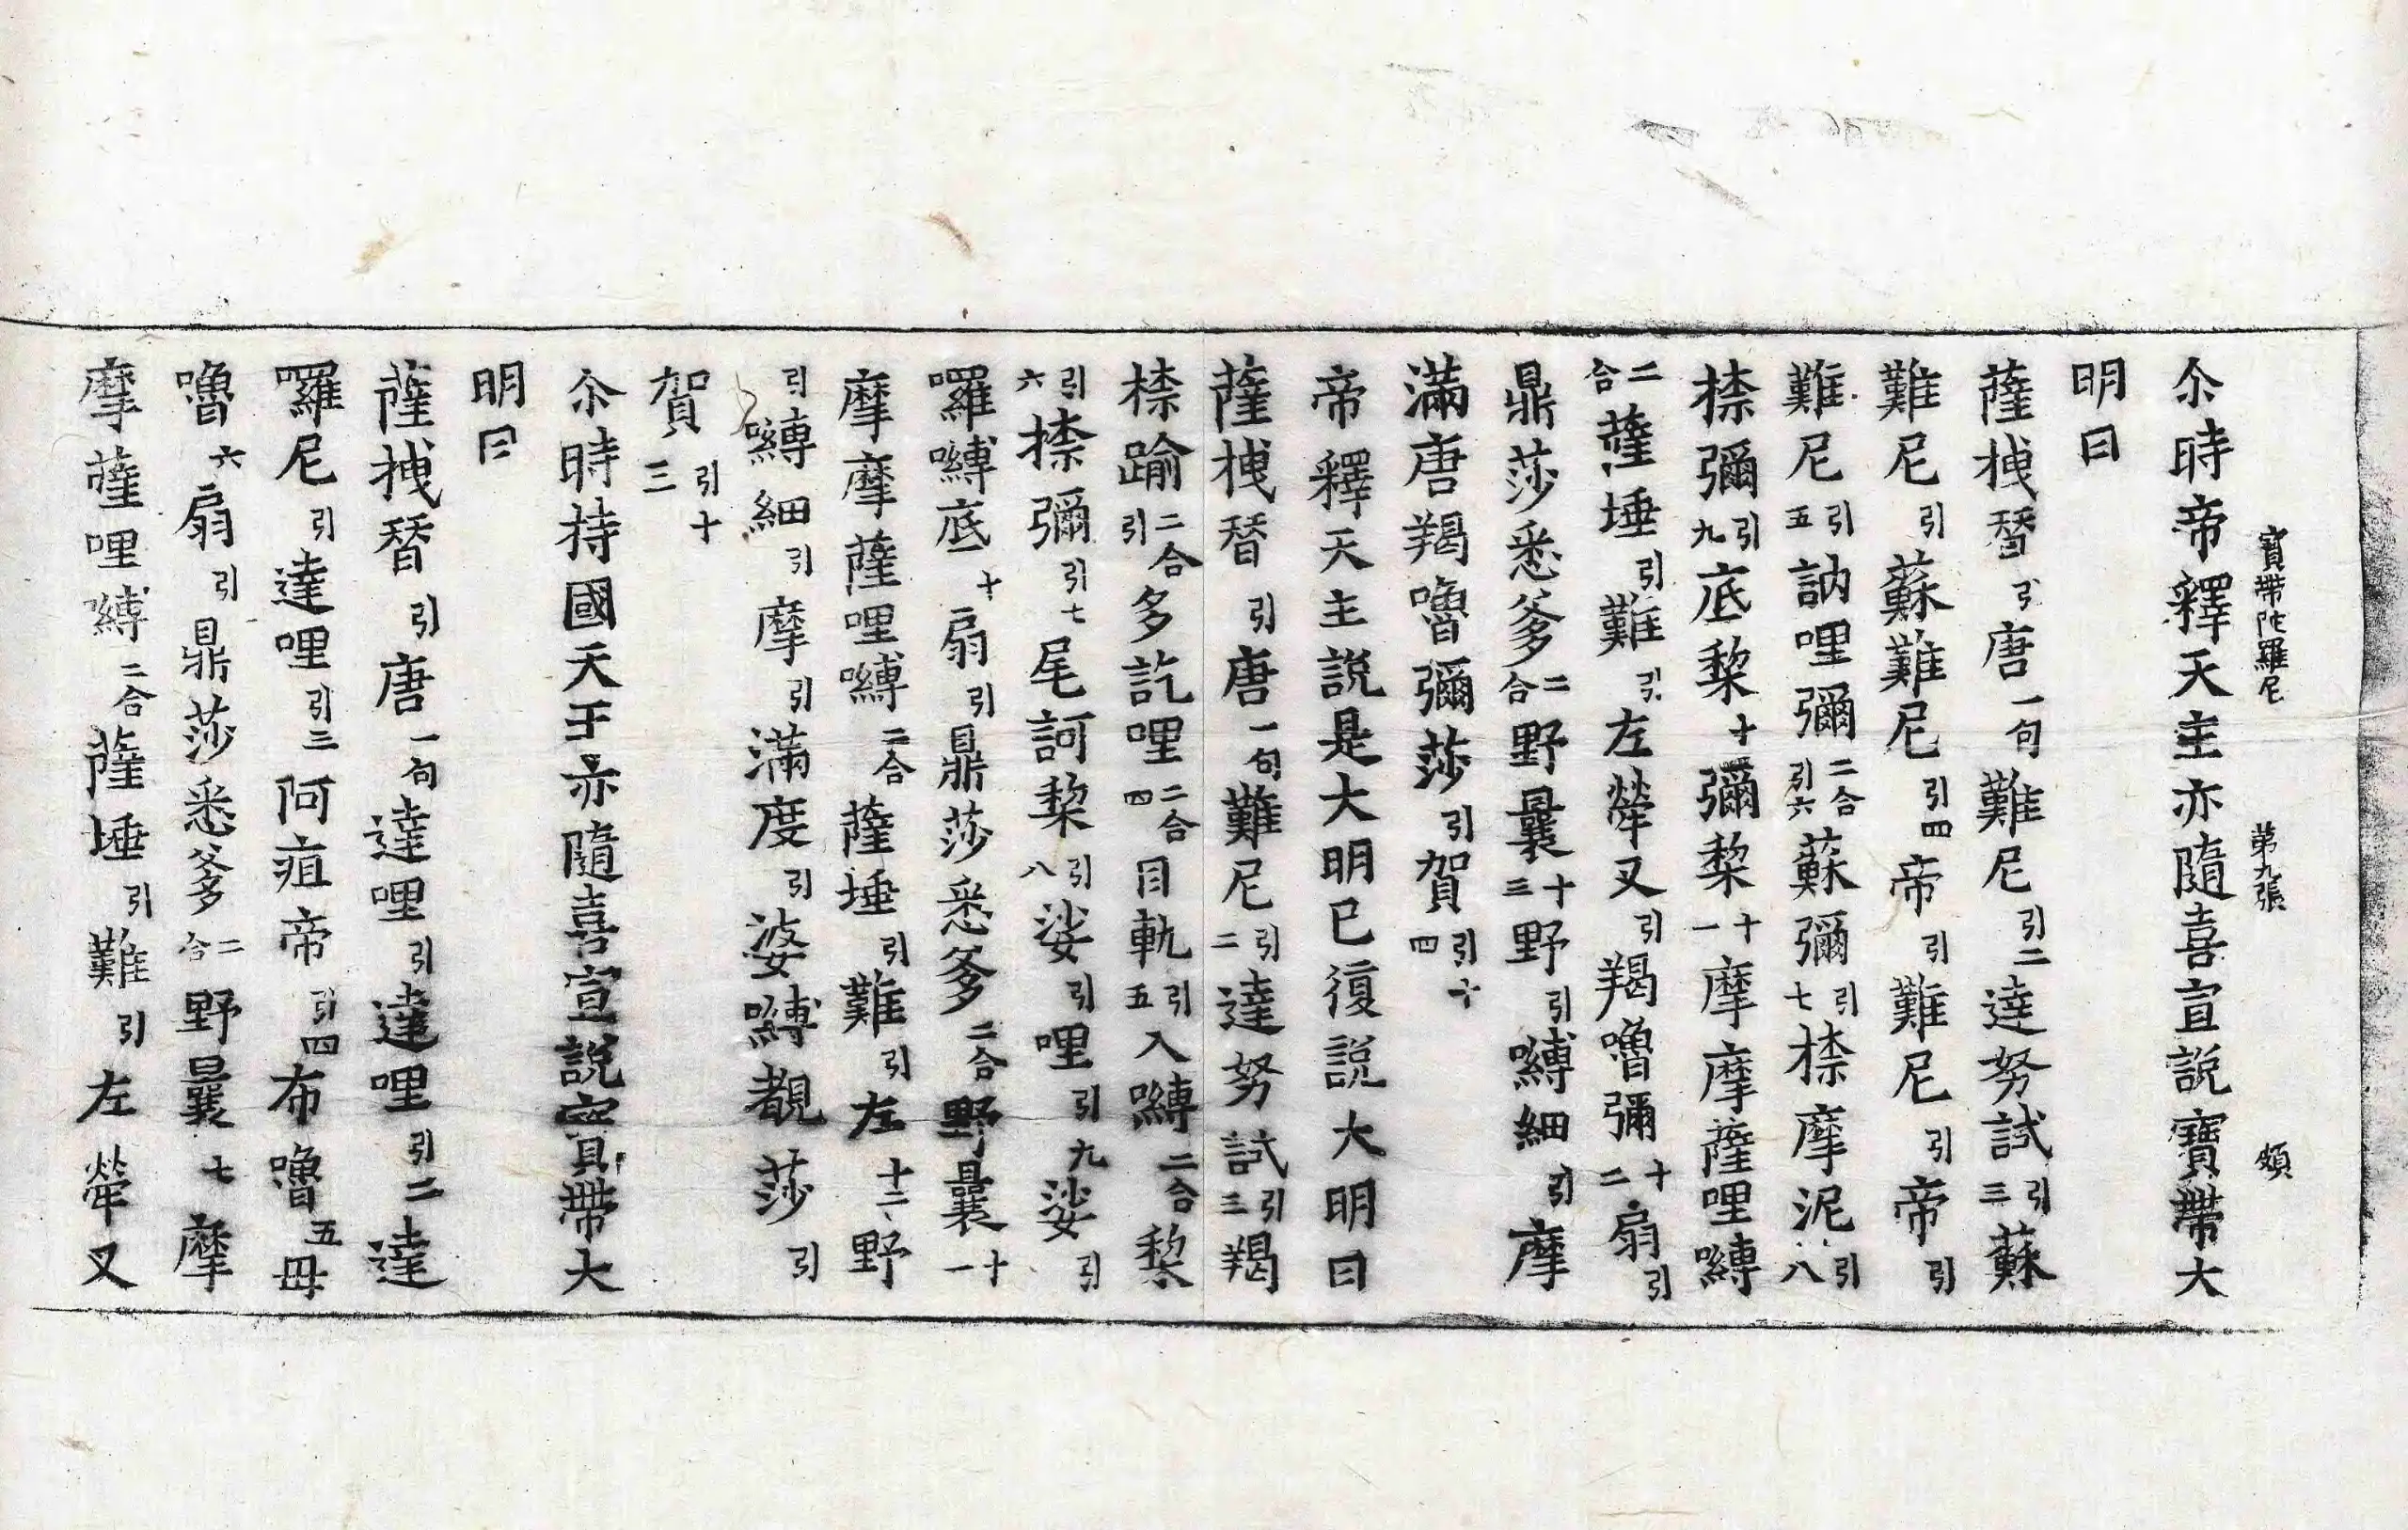 寶帶陀羅尼 第九張 頗
尒時帝釋天主亦隨喜宣說寶帶大
明曰
薩拽朁引唐一句難尼引二達努試引三蘇
難尼引蘇難尼引四帝引難尼引帝引
難尼引五訥哩彌二合引六蘇彌引七㮈摩泥引八
㮈彌引九底棃十彌棃十一摩摩薩哩嚩
二合薩埵引難引左犖叉引羯嚕彌十二扇引
鼎莎悉爹二合野曩十三野引嚩細引摩
滿唐羯嚕彌莎引賀引十四
帝釋天主說是大明已復說大明曰
薩拽朁引唐一句難尼引二達努試引三羯
㮈踰二合引多訖哩二合四目軌引五入嚩二合黎
引六㮈彌引七尾訶棃引八娑引哩引九娑引
囉嚩底十扇引鼎莎悉爹二合野曩十一
摩摩薩哩嚩二合薩埵引難引左十二野
引嚩細引摩引滿度引婆嚩覩莎引
賀引十三
尒時持國天王亦隨喜宣說寶帶大
明曰
薩拽朁引唐一句達哩引達哩引二達
囉尼引達哩引三阿疽帝引四布嚕五毋
嚕六扇引鼎莎悉爹二合野曩七摩
摩薩哩嚩二合薩埵引難引左犖叉